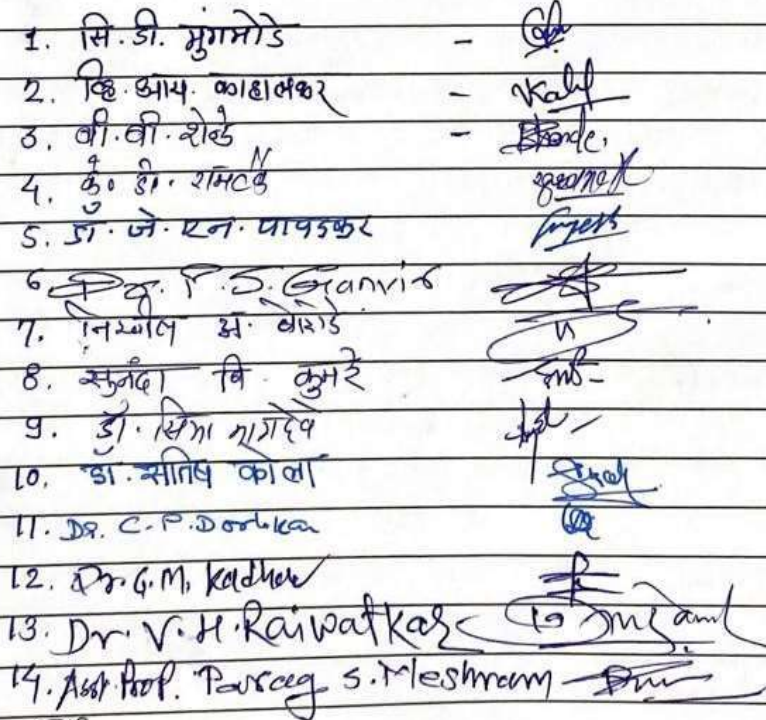 1. सि. डी. मुंगमोडे -
2. व्हि. आय. काहालकर -
3. बी. बी. शेन्डे - Shende.
4. कु. डी. रामटेके
5. डॉ. जे. एन. पापडकर
6. Dr. P. S. Ganvir
7. निखील अ. बोरोडे
8. सुनंदा वि. कुमरे
9. डॉ. सिमा नागदेवे
10. डॉ. सतिष कोला
11. Dr. C. P. Dorlikar
12. Dr. G. M. Kadhav
13. Dr. V. H. Raiwatkar
14. Asst. Prof. Parag S. Meshram